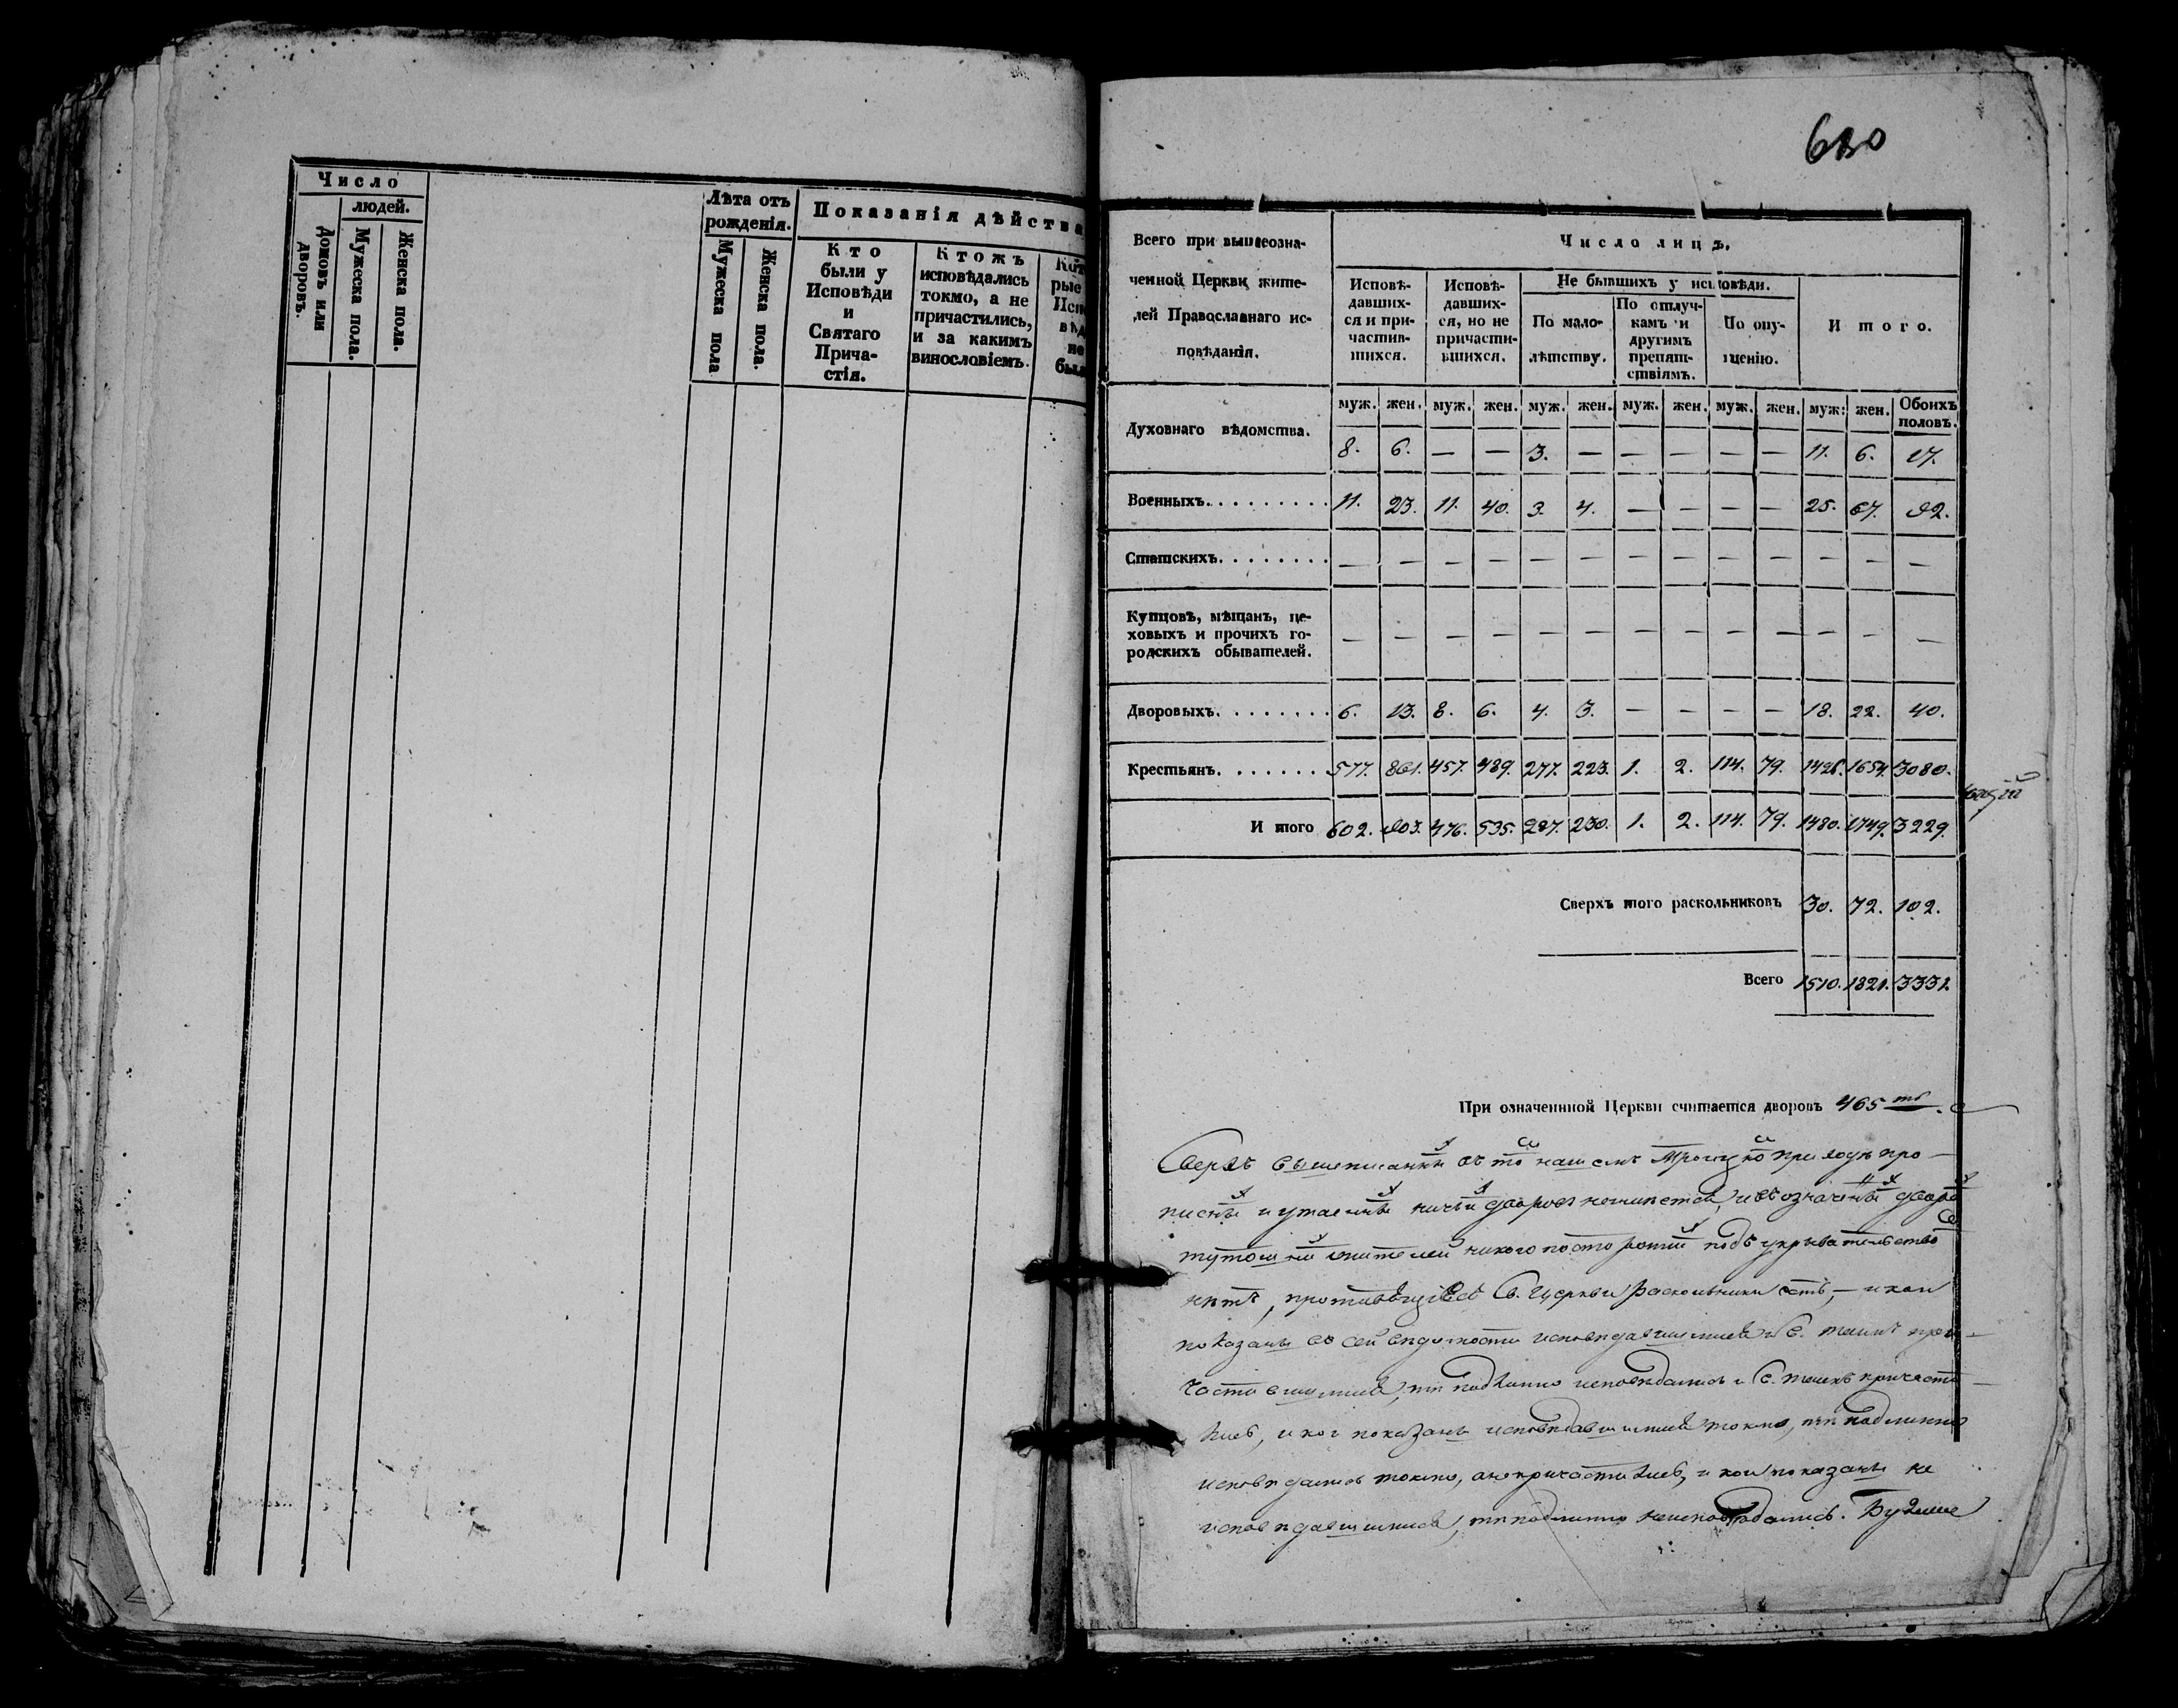 Число
людей.
Домовъ или дворовъ.
Мужеска пола.
Женска пола.
Лѣта отъ
рожденія.
Мужеска пола
Женска пола.
Показанія дѣйства
Кто
были у
Исповѣди
и
Святаго
Прича-
стія.
Ктожъ
исповѣдались
токмо, а не
причастились,
и за какимъ
винословіемъ.
рые
Исп
вѣд
не
был
680
Всего при вышеозна-
ченной Церкви жите-
лей Православнаго ис-
повѣданія.
Число лицъ.
Исповѣ-
давших-
ся и при-
частив-
шихся.
Исповѣ-
давших-
ся, но не
причасти-
вшихся.
Не бывшихъ у исповѣди.
По мало-
лѣтству.
По отлуч-
камъ и
другимъ
препят-
ствіямъ.
По опу-
щенію.
И того.
муж. жен. муж. жен. муж. жен. муж. жен. муж. жен. муж: жен. Обоихъ
половъ.
Духовнаго вѣдомства.
8. 6. — — 3. — — — — — 11. 6. 17.
Военныхъ. . . . . . . . . . 11. 23. 11. 40. 3. 4. — — — — 25. 67. 92.
Статскихъ. . . . . . . . — — — — — — — — — — — — —
Купцовъ, мѣщанъ, це-
ховыхъ и прочихъ го-
родскихъ обывателей.
— — — — — — — — — — — — —
Дворовыхъ. . . . . . . . 6. 13. 8. 6. 4. 3. — — — — 18. 22. 40.
Крестьянъ. . . . . . . 577. 861. 457. 489. 277. 223. 1. 2. 114. 79. 1426. 1654. 3080.
И того 602. 903. 476. 535. 287. 230. 1. 2. 114. 79. 1480. 1749. 3229.
Сверхъ того раскольниковъ 30. 72. 102.
Всего 1510. 1821. 3331.
При означеннной Церкви считается дворовъ 465 ть.
Сверхъ вышеписанны въ то нашемъ приходѣ про-
писны и утаенны ничьи дворовъ неимѣется, и въ означены двора
жителей никого посторонни подъ укрывательство
нѣтъ, Св. Церкви раскольники есть, — и кои
показаны въ сей вѣдомости исповѣдавшимися и С. таинъ при-
частившимися, тѣ подлинно исповѣдались и С. таинъ причасти-
лись, и кои показаны исповѣдавшимися токмо, тѣ подлинно
исповѣдались токмо, а не причастились, и кои показаны не
исповѣдавшимися, тѣ подлинно неисповѣдались. Буде же